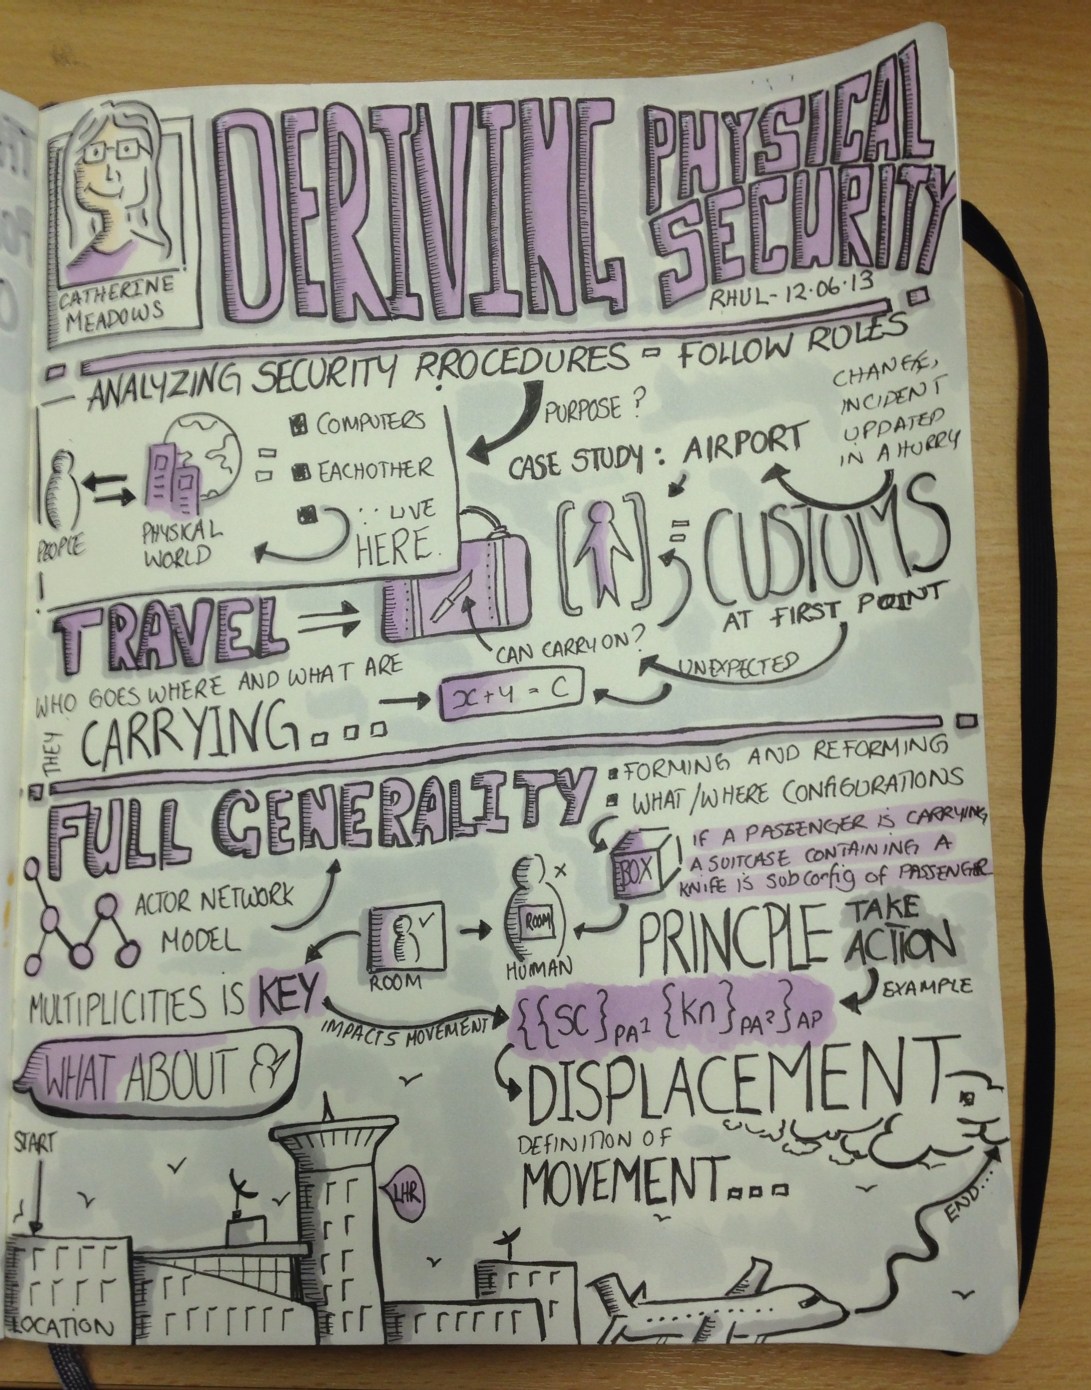 DERIVING PHYSICAL SECURITY
CATHERINE
MEADOWS
RHUL - 12.06.13
ANALYZING SECURITY PROCEDURES = FOLLOW RULES
PURPOSE?
CASE STUDY: AIRPORT
CHANGE,
INCIDENT
UPDATED
IN A HURRY
COMPUTERS
EACHOTHER
∵ LIVE
HERE.
PEOPLE
PHYSICAL
WORLD
CUSTOMS
AT FIRST POINT
TRAVEL
CAN CARRY ON?
UNEXPECTED
x+y = C
WHO GOES WHERE AND WHAT ARE
THEY CARRYING...
FULL GENERALITY
FORMING AND REFORMING
WHAT/WHERE CONFIGURATIONS
BOX
IF A PASSENGER IS CARRYING
A SUITCASE CONTAINING A
KNIFE IS SUBCONFIG OF PASSENGER
ACTOR NETWORK
MODEL
ROOM
X
ROOM
HUMAN
PRINCPLE TAKE
ACTION
EXAMPLE
MULTIPLICITIES IS KEY
IMPACTS MOVEMENT
{{SC}PA1 {kn}PA2}AP
WHAT ABOUT
DISPLACEMENT.
DEFINITION OF
MOVEMENT...
START
LHR
END...
LOCATION